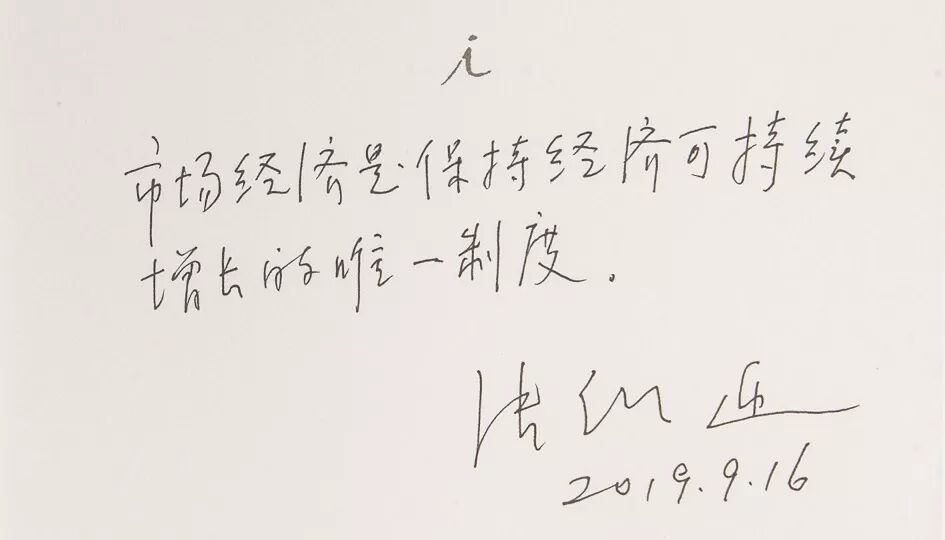 i
市场经济是保持经济可持续
增长的唯一制度.
张维迎
2019.9.16